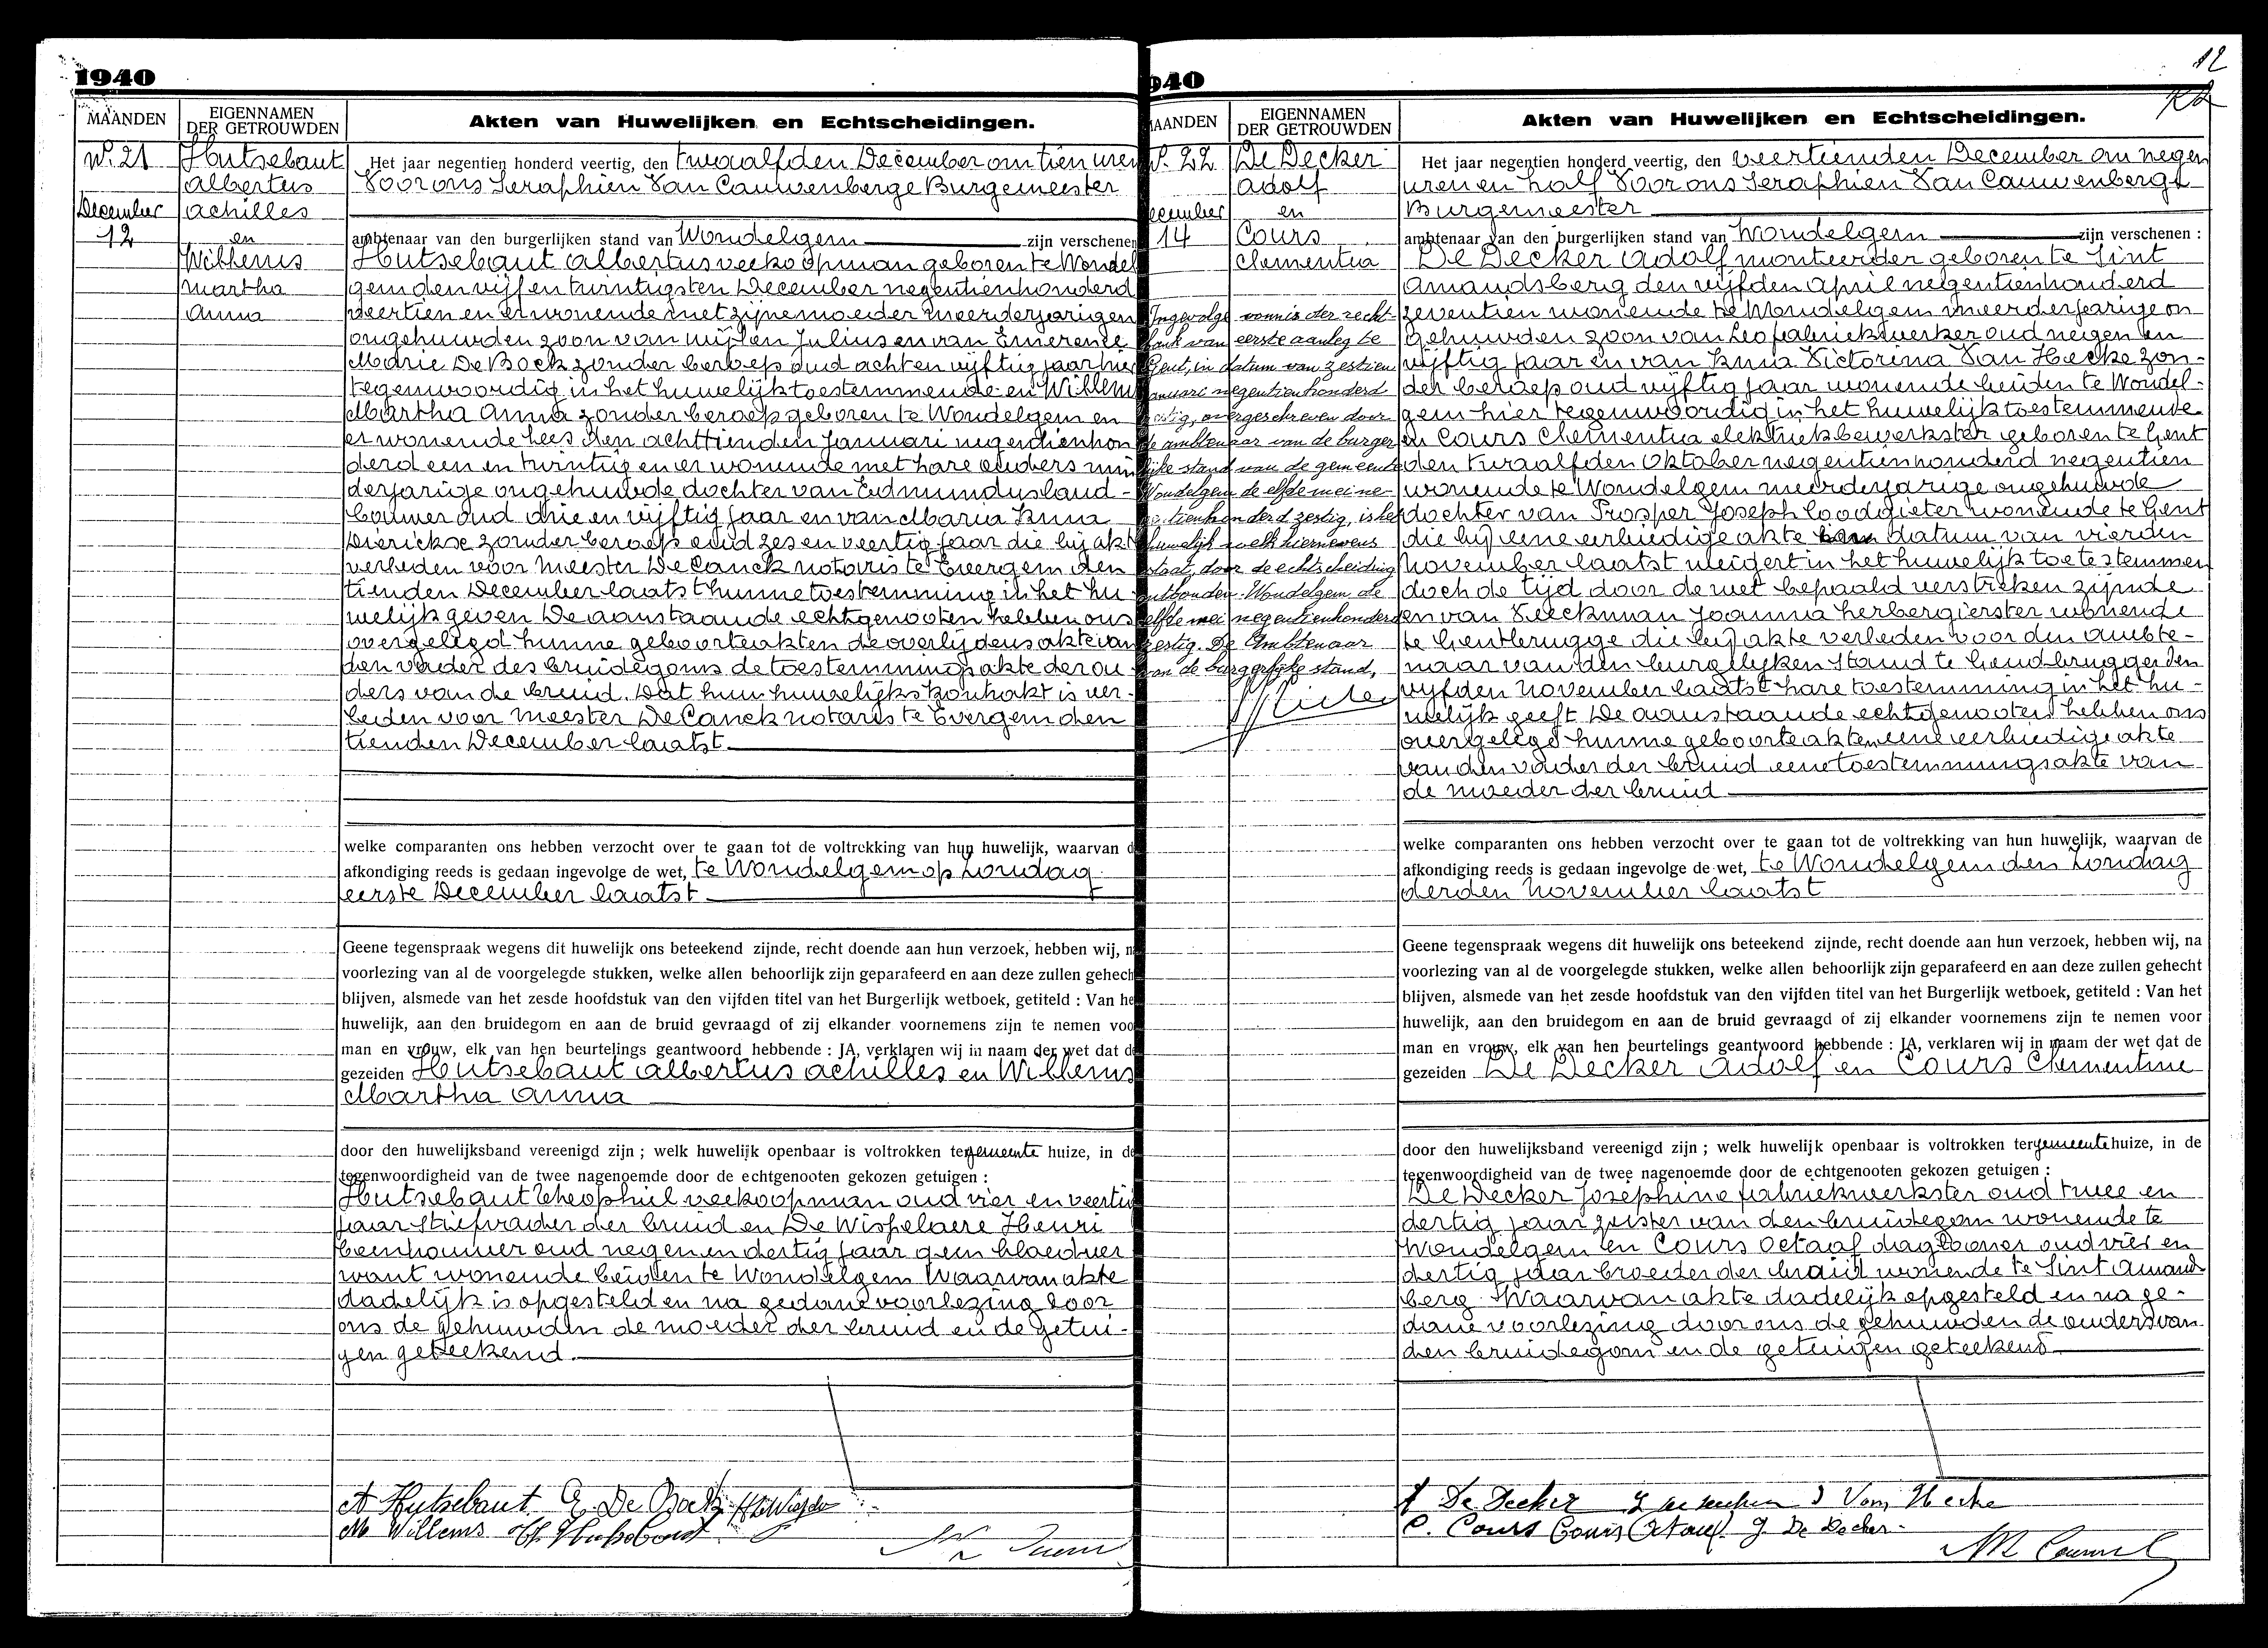 1940
MAANDEN
EIGENNAMEN
DER GETROUWDEN
Akten van Huwelijken en Echtscheidingen.
N°. 21
December
12
Hutsebaut
Albertus
Achilles
en
Willems
Martha
Anna
Het jaar negentien honderd veertig, den twaalfden December om tien uren
Voor ons Seraphien Van Cauwenberge Burgemeester
ambtenaar van den burgerlijken stand van Wondelgem zijn verschenen
Hutsebaut Albertus veekoopman geboren te Wondel
gem den vijf en twintigsten December negentienhonderd
veertien en er wonende met zijne moeder meerderjarigen
ongehuwden zoon van wijlen Julius en van Emerence
Marie De Bock zonder beroep oud acht en vijftig jaar hier
tegenwoordig in het huwelijk toestemmende en Willems
Martha Anna zonder beroep geboren te Wondelgem en
er wonende den achttienden Januari negentienhon
derd een en twintig en er wonende met hare ouders min
derjarige ongehuwde dochter van Edmundus land-
bouwer oud drie en vijftig jaar en van Maria Anna
Dierickse zonder beroep oud zes en veertig jaar die bij akt
verleden voor Meester De Canck notaris te Evergem den
tienden December laatst hunne toestemming in het hu
welijk geven De aanstaande echtgenooten hebben ons
overgelegd hunne geboorteakten de overlijdensakte van
den vader des bruidegoms de toestemmingsakte der ou
ders van de bruid. Dat hun huwelijkskontrakt is ver-
leiden voor Meester De Canck notaris te Evergem den
tienden December laatst.
welke comparanten ons hebben verzocht over te gaan tot de voltrekking van hun huwelijk, waarvan d
afkondiging reeds is gedaan ingevolge de wet, te Wondelgem op zondag
eerste December laatst
Geene tegenspraak wegens dit huwelijk ons beteekend zijnde, recht doende aan hun verzoek, hebben wij, n
voorlezing van al de voorgelegde stukken, welke allen behoorlijk zijn geparafeerd en aan deze zullen gehech
blijven, alsmede van het zesde hoofdstuk van den vijfden titel van het Burgerlijk wetboek, getiteld : Van he
huwelijk, aan den bruidegom en aan de bruid gevraagd of zij elkander voornemens zijn te nemen voo
man en vrouw, elk van hen beurtelings geantwoord hebbende : JA, verklaren wij in naam der wet dat d
gezeiden Hutsebaut Albertus Achilles en Willems
Martha Anna
door den huwelijksband vereenigd zijn ; welk huwelijk openbaar is voltrokken ter gemeente huize, in de
tegenwoordigheid van de twee nagenoemde door de echtgenooten gekozen getuigen :
Hutsebaut Theophiel veekoopman oud vier en veertig
jaar stiefvader der bruid en De Wispelaere Henri
beenhouwer oud negen en dertig jaar geen bloedver
want wonende beiden te Wondelgem Waarvan akte
dadelijk is opgesteld en na gedane voorlezing door
ons de gehuwden de moeder der bruid en de getui-
gen geteekend.
A Hutsebaut E. De Bock
M Willems
940
12
MAANDEN
EIGENNAMEN
DER GETROUWDEN
Akten van Huwelijken en Echtscheidingen.
N°. 22
ecember
14
De Decker
Adolf
en
Cours
Clementia
Ingevolge vonnis der recht-
bank van eerste aanleg te
Gent, in datum van zestien
januari negentienhonderd
zestig, overgeschreven door
de ambtenaar van de burger
lijke stand van de gemeente
Wondelgem de elfde mei ne-
gentienhonderd zestig, is het
huwelijk welk hiernevens
staat, door de echtscheiding
ontbonden. Wondelgem de
elfde mei negentienhonderd
zestig. De Ambtenaar
van de burgerlijke stand,
Het jaar negentien honderd veertig, den veertienden December om negen
uren en half Voor ons Seraphien Van Cauwenberge
Burgemeester
ambtenaar van den burgerlijken stand van Wondelgem zijn verschenen :
De Decker Adolf monteerder geboren te Sint
Amandsberg den vijfden April negentienhonderd
zeventien wonende te Wondelgem meerderjarige on
gehuwden zoon van Leo fabriekswerker oud negen en
vijftig jaar en van Anna Victorina Van Hecke zon-
der beroep oud vijftig jaar wonende beiden te Wondel-
gem hier tegenwoordig in het huwelijk toestemmende
en Cours Clementia elektriekbewerkster geboren te Gent
den twaalfden Oktober negentienhonderd negentien
wonende te Wondelgem meerderjarige ongehuwde
dochter van Prosper Joseph loodgieter wonende te Gent
die bij eene eerbiedige akte datum van vierden
November laatst weigert in het huwelijk toe te stemmen
doch de tijd door de wet bepaald verstreken zijnde
en van Veeckman Joanna herbergierster wonende
te Gentbrugge die bij akte verleden voor den ambte-
naar van den burgelijken stand te Gendbrugge den
vijfden November laatst hare toestemming in het hu-
welijk geeft De aanstaande echtgenooten hebben ons
overgelegd hunne geboorteakten eene eerbiedige akte
van den vader der bruid eene toestemmingsakte van
de moeder der bruid
welke comparanten ons hebben verzocht over te gaan tot de voltrekking van hun huwelijk, waarvan de
afkondiging reeds is gedaan ingevolge de wet, te Wondelgem den zondag
derden November laatst
Geene tegenspraak wegens dit huwelijk ons beteekend zijnde, recht doende aan hun verzoek, hebben wij, na
voorlezing van al de voorgelegde stukken, welke allen behoorlijk zijn geparafeerd en aan deze zullen gehecht
blijven, alsmede van het zesde hoofdstuk van den vijfden titel van het Burgerlijk wetboek, getiteld : Van het
huwelijk, aan den bruidegom en aan de bruid gevraagd of zij elkander voornemens zijn te nemen voor
man en vrouw, elk van hen beurtelings geantwoord hebbende : JA, verklaren wij in naam der wet dat de
gezeiden De Decker Adolf en Cours Clementine
door den huwelijksband vereenigd zijn ; welk huwelijk openbaar is voltrokken ter gemeente huize, in de
tegenwoordigheid van de twee nagenoemde door de echtgenooten gekozen getuigen :
De Decker Josephine fabriekwerkster oud twee en
dertig jaar zuster van den bruidegom wonende te
Wondelgem en Cours Octaaf daglooner oud vier en
dertig jaar broeder der bruid wonende te Sint Amand
berg Waarvan akte dadelijk opgesteld en na ge-
dane voorlezing door ons de gehuwden de ouders van
den bruidegom en de getuigen geteekend
De Decker Van Hecke
C. Cours Cours Octaaf J. De Decker